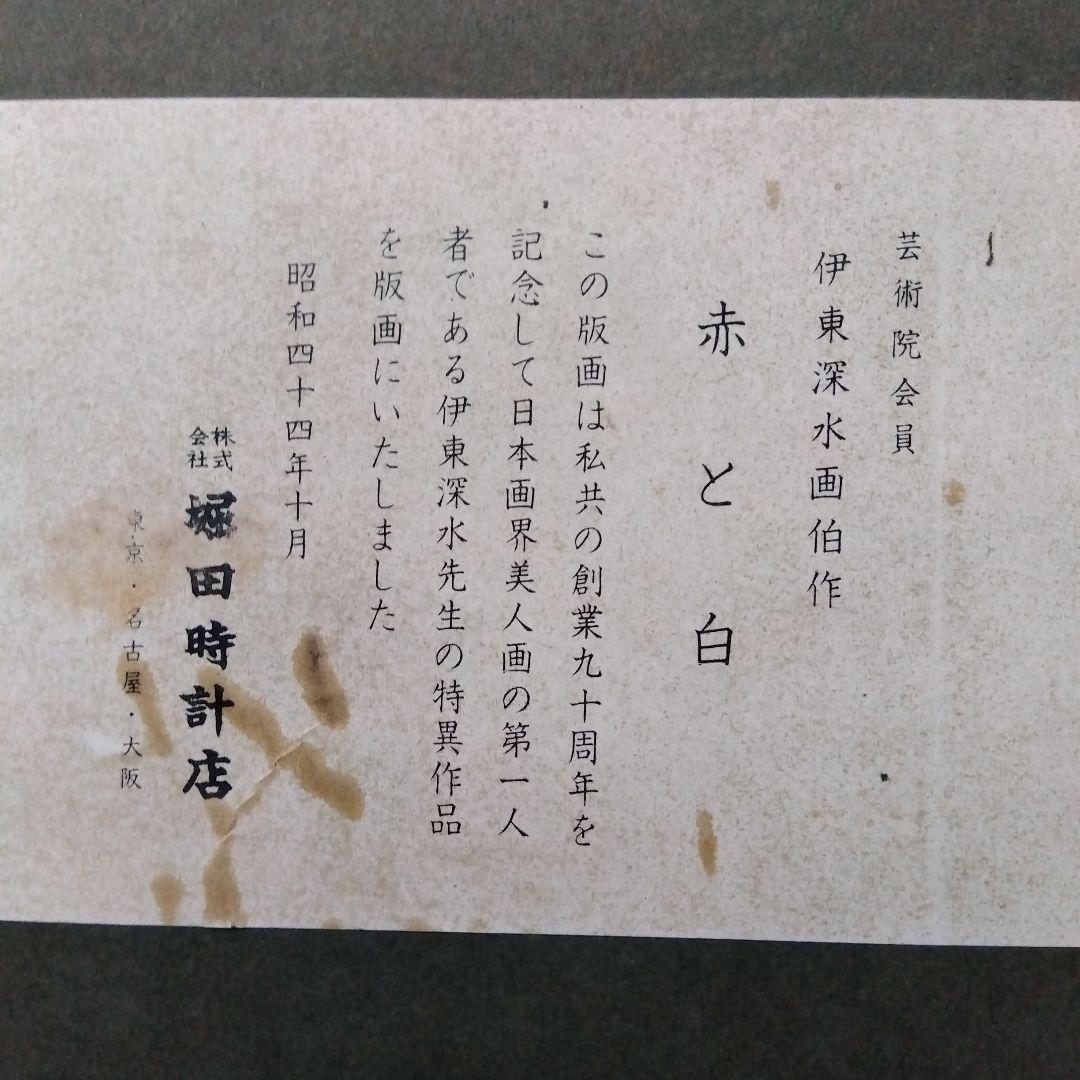 芸術院会員
伊東深水画伯作
赤と白
この版画は私共の創業九十周年を
記念して日本画界美人画の第一人
者である伊東深水先生の特異作品
を版画にいたしました
昭和四十四年十月
株式会社 堀田時計店
東京・名古屋・大阪